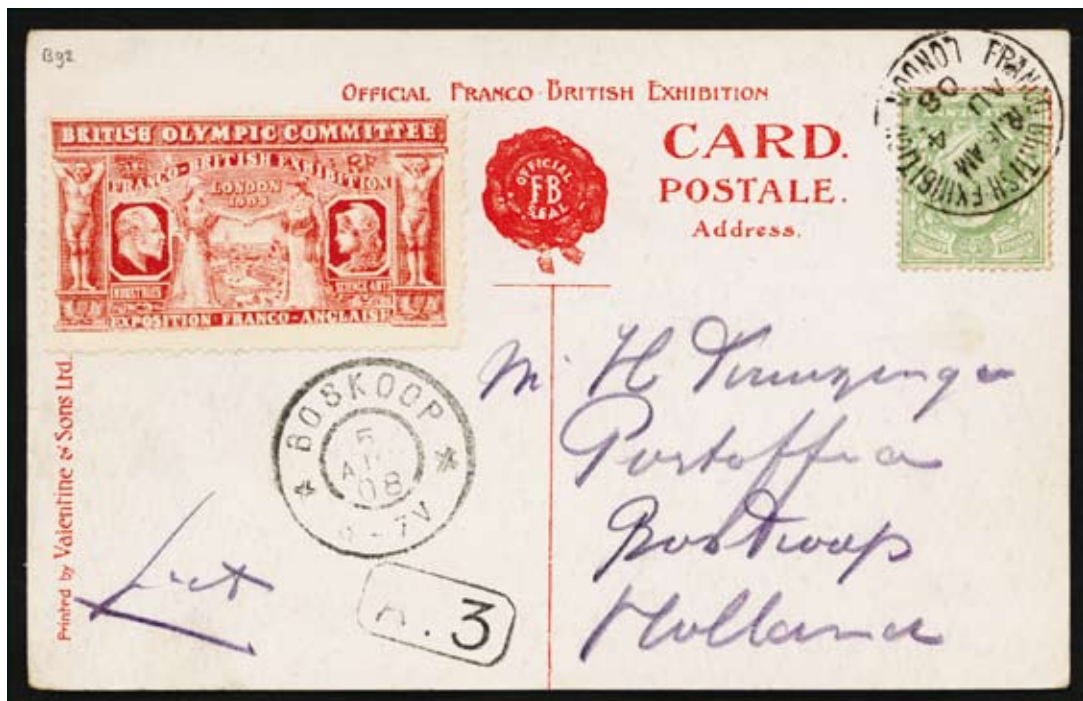 B92
OFFICIAL FRANCO-BRITISH EXHIBITION
BRITISH OLYMPIC COMMITTEE.
FRANCO-BRITISH EXHIBITION
LONDON
1908
INDUSTRIES
SCIENCE-ART
EXPOSITION-FRANCO-ANGLAISE
OFFICIAL
FB
SEAL
CARD.
POSTALE.
Address.
FRANCO BRITISH EXHIBITION LONDON
AM
4
AU
08
Printed by Valentine & Sons Ltd.
BOSKOOP
5
08
-7V
3
H
Postoffice
Boskoop
Holland